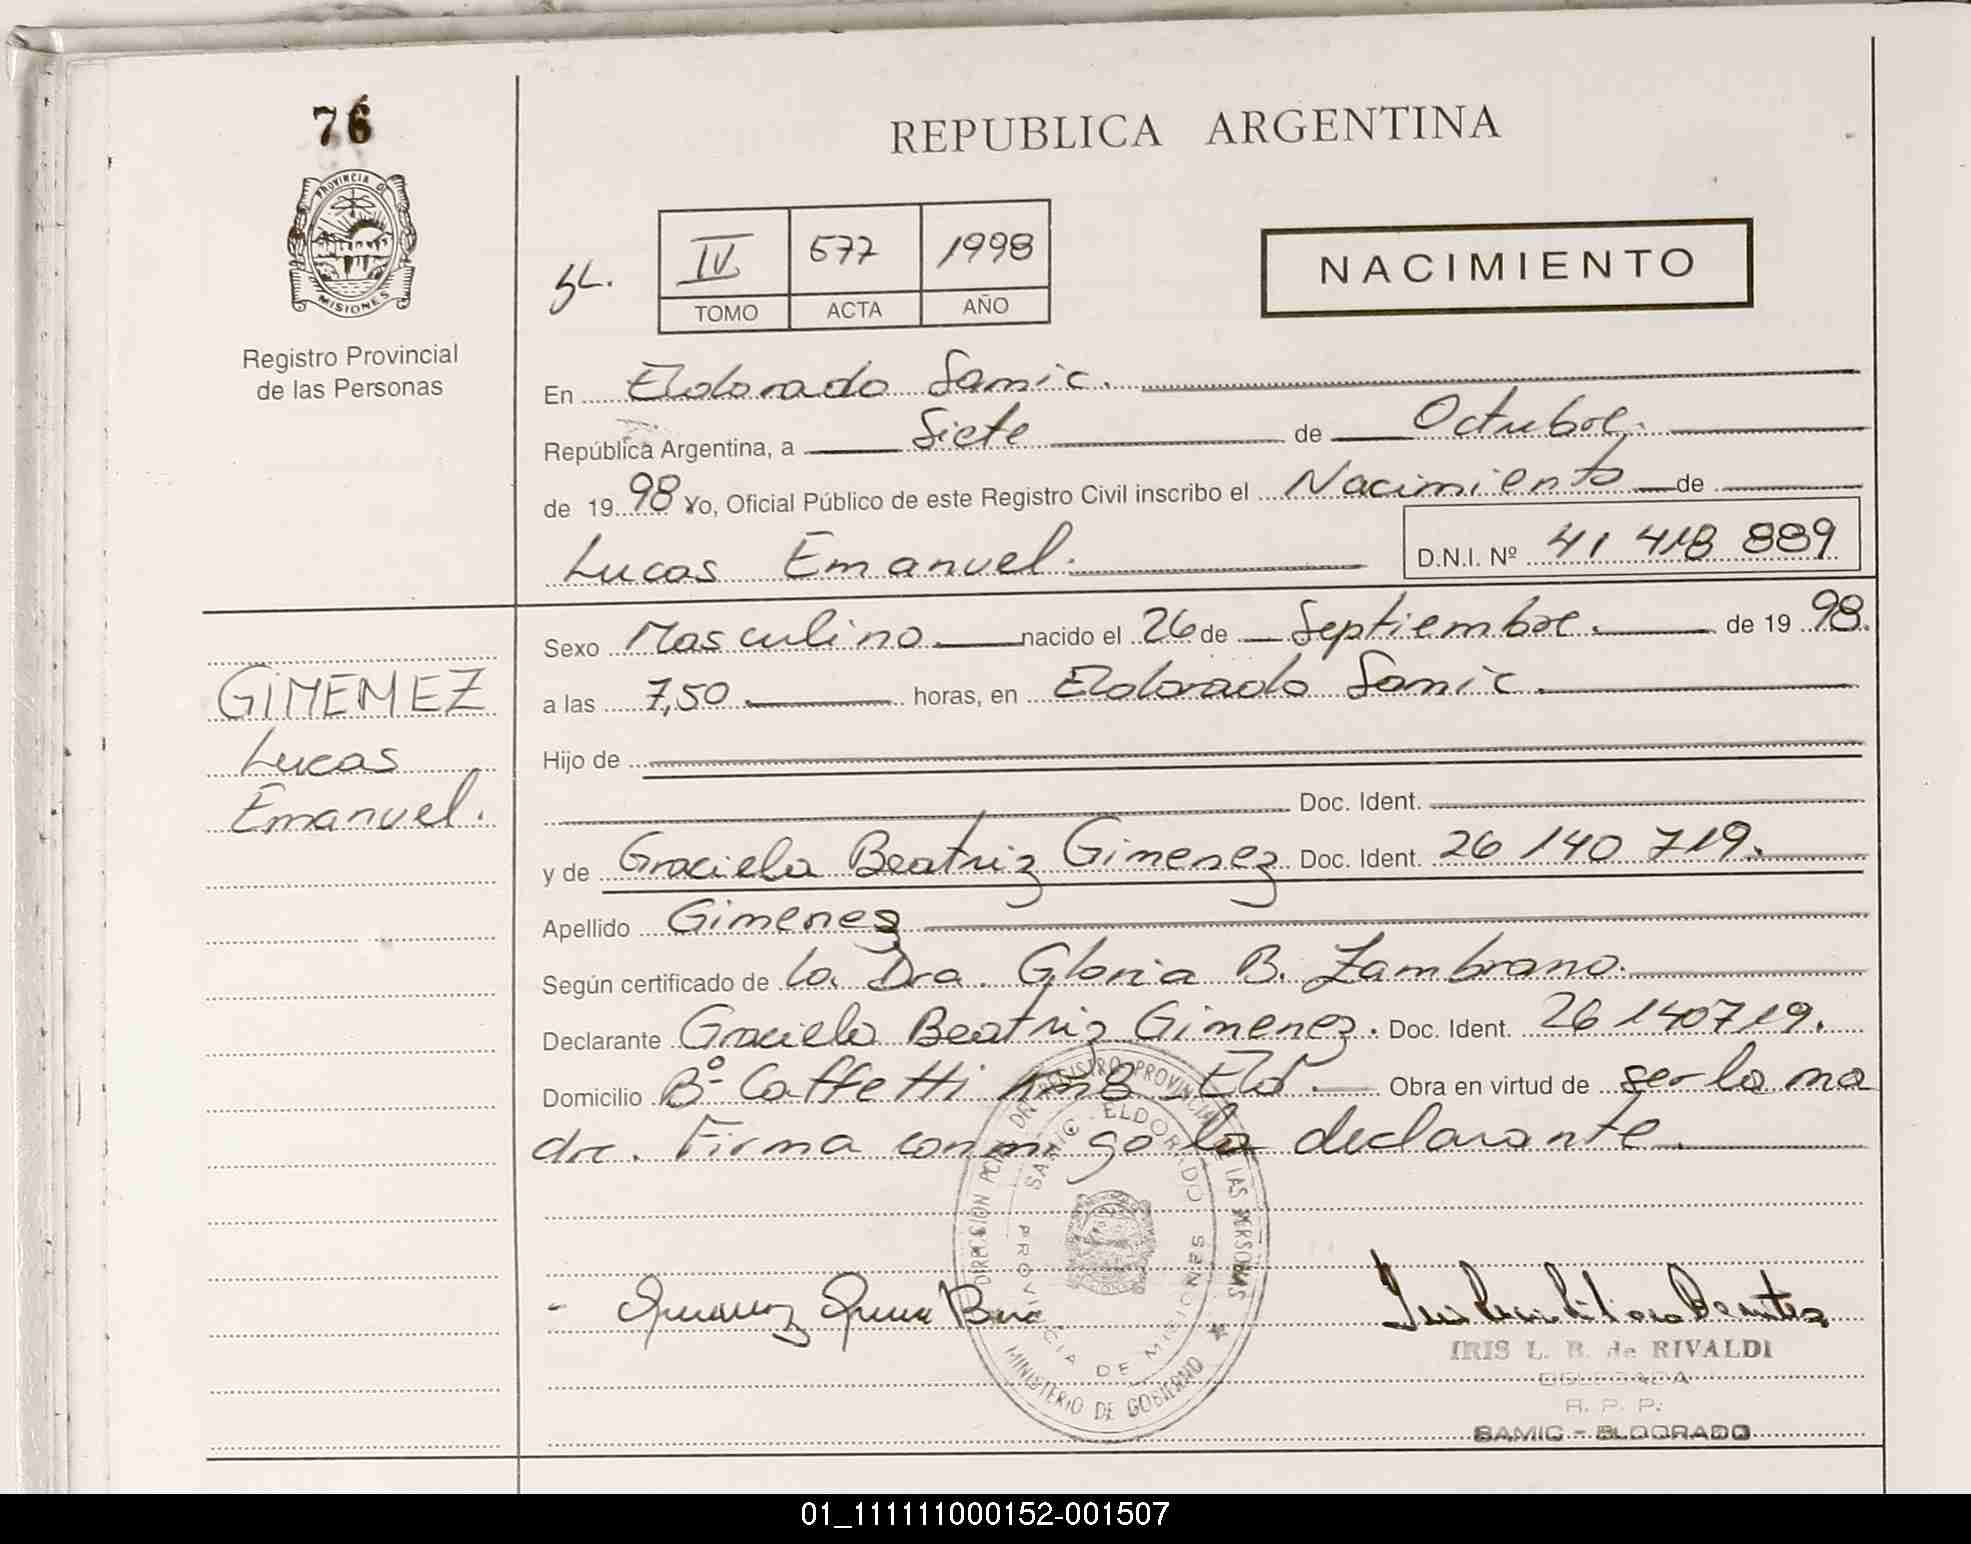 76
REPUBLICA ARGENTINA
PROVINCIA DE
MISIONES
Registro Provincial
de las Personas
IV 577 1998
TOMO ACTA AÑO
NACIMIENTO
En Eldorado Samic.
República Argentina, a Siete de Octubre.
de 19 98 Yo, Oficial Público de este Registro Civil inscribo el Nacimiento de
Lucas Emanuel. D.N.I. Nº 41 418 889
GIMENEZ
Lucas
Emanuel.
Sexo Masculino. nacido el 26 de Septiembre. de 19 98.
a las 7,50 horas, en Eldorado Samic.
Hijo de
Doc. Ident.
y de Graciela Beatriz Gimenez Doc. Ident. 26 140 719.
Apellido Gimenez
Según certificado de la Dra. Gloria B. Zambrano.
Declarante Graciela Beatriz Gimenez. Doc. Ident. 26 140719.
Domicilio Bº Caffetti Km8 Eldº. Obra en virtud de ser la ma
dre. Firma conmigo la declarante.
REGISTRO PROVINCIAL DE LAS PERSONAS
SAMIC - ELDORADO
PROVINCIA DE MISIONES
MINISTERIO DE GOBIERNO
IRIS L. B. de RIVALDI
DELEGADA
R. P. P.
SAMIC - ELDORADO
01_111111000152-001507